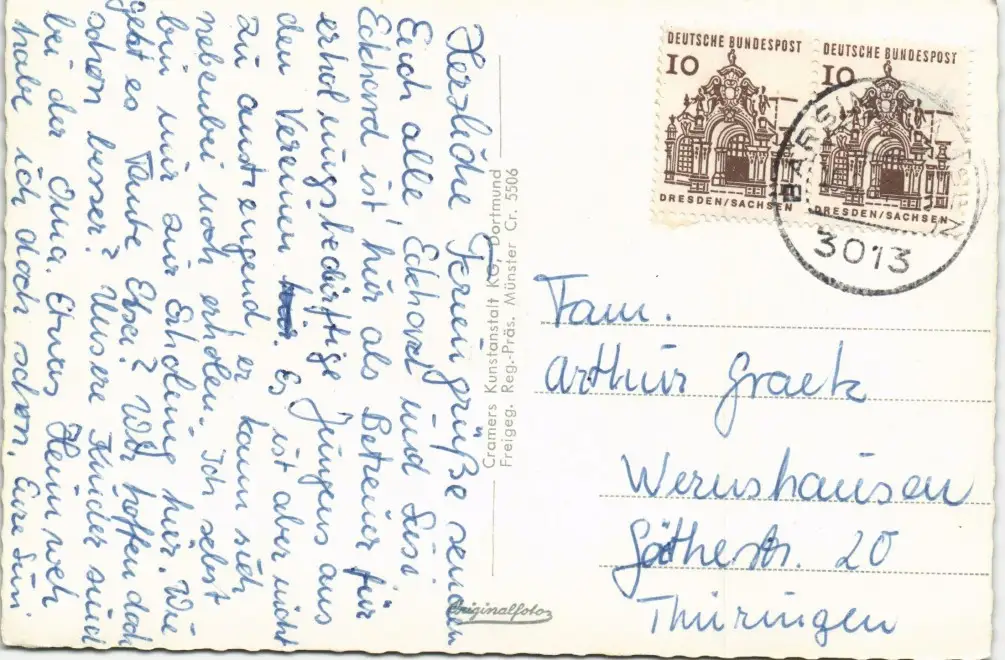 Herzliche Feriengrüße senden
Euch alle, Eckhard und Susi
Eckhard ist hier als Betreuer für
erholungsbedürftige Jungens aus
den Vereinen. Es ist aber nicht
zu anstrengend, er kann sich
nebenbei noch erholen. Ich selbst
bin nur zur Erholung hier. Wie
geht es Tante Elsei? Wir hoffen doch
schon besser? Unsere Kinder sind
bei der Oma. Etwas Heimweh
habe ich doch schon. Eure Susi
Cramers Kunstanstalt KG, Dortmund
Freigeg. Reg.-Präs. Münster Cr. 5506
Originalfoto
DEUTSCHE BUNDESPOST
10
DRESDEN/SACHSEN
DEUTSCHE BUNDESPOST
10
DRESDEN/SACHSEN
3013
Fam.
Arthur Graek
Wernshausen
Göthestr. 20
Thüringen